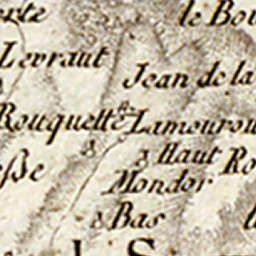 le Bou
Levraut
Jean de la
Rouquette
Lamourou
Haut
Ro
Mondor
Bas
S